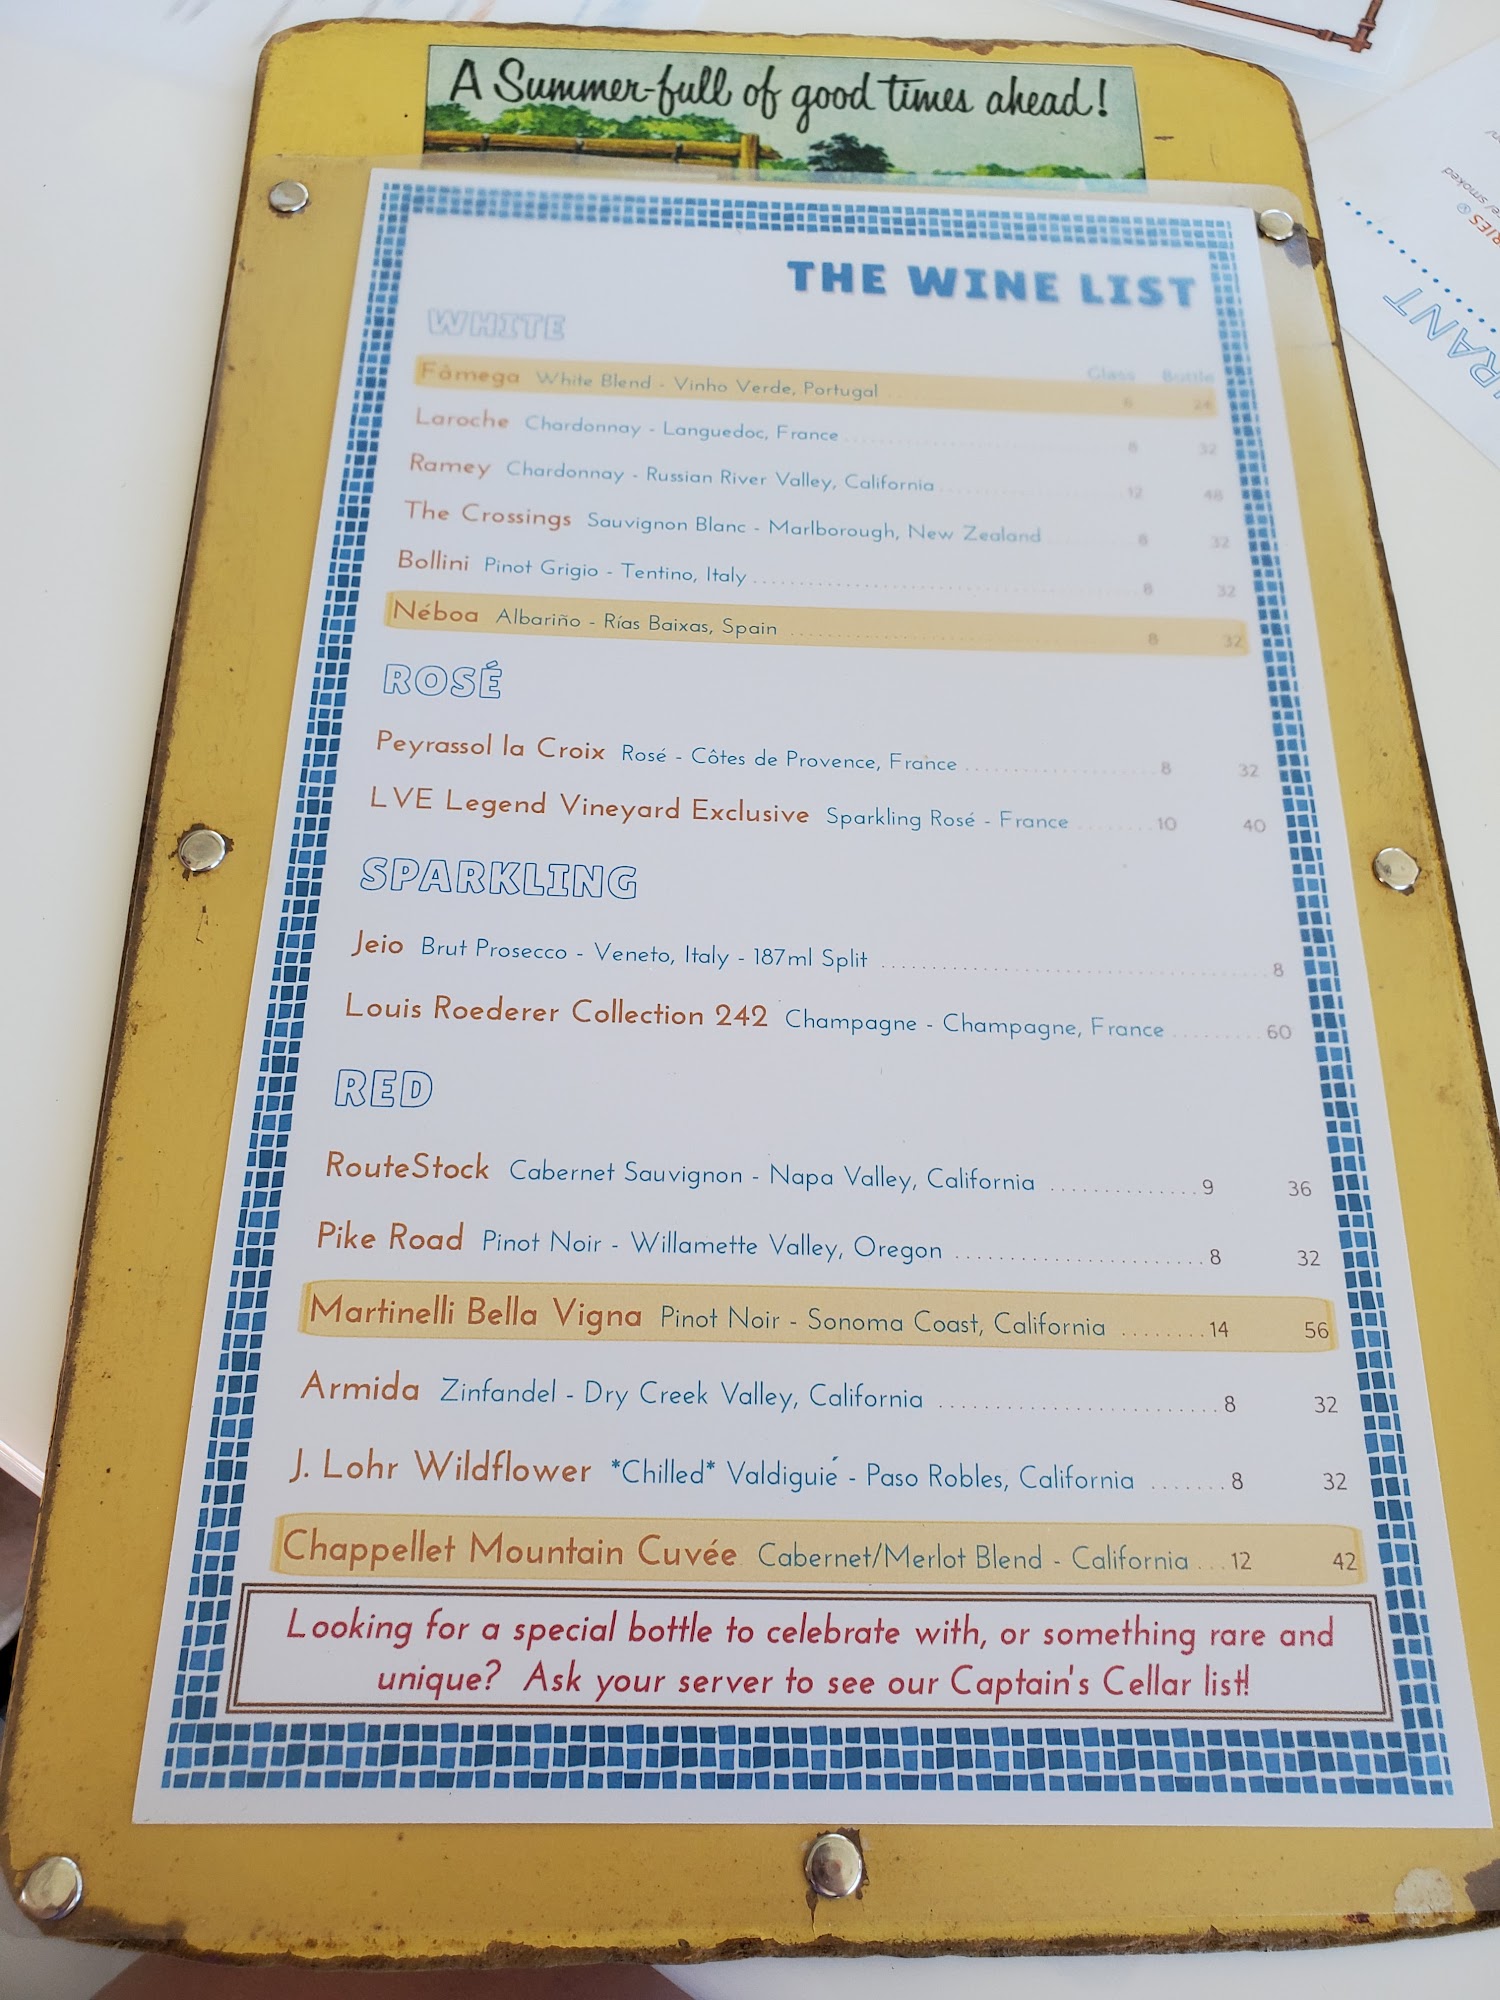 A Summer-full of good times ahead!
THE WINE LIST
WHITE
Glass Bottle
Fâmega White Blend - Vinho Verde, Portugal 6 24
Laroche Chardonnay - Languedoc, France 8 32
Ramey Chardonnay - Russian River Valley, California 12 48
The Crossings Sauvignon Blanc - Marlborough, New Zealand 8 32
Bollini Pinot Grigio - Tentino, Italy 8 32
Néboa Albariño - Rías Baixas, Spain 8 32
ROSÉ
Peyrassol la Croix Rosé - Côtes de Provence, France 8 32
LVE Legend Vineyard Exclusive Sparkling Rosé - France 10 40
SPARKLING
Jeio Brut Prosecco - Veneto, Italy - 187ml Split 8
Louis Roederer Collection 242 Champagne - Champagne, France 60
RED
RouteStock Cabernet Sauvignon - Napa Valley, California 9 36
Pike Road Pinot Noir - Willamette Valley, Oregon 8 32
Martinelli Bella Vigna Pinot Noir - Sonoma Coast, California 14 56
Armida Zinfandel - Dry Creek Valley, California 8 32
J. Lohr Wildflower *Chilled* Valdiguié - Paso Robles, California 8 32
Chappellet Mountain Cuvée Cabernet/Merlot Blend - California 12 42
Looking for a special bottle to celebrate with, or something rare and
unique? Ask your server to see our Captain's Cellar list!
smoked